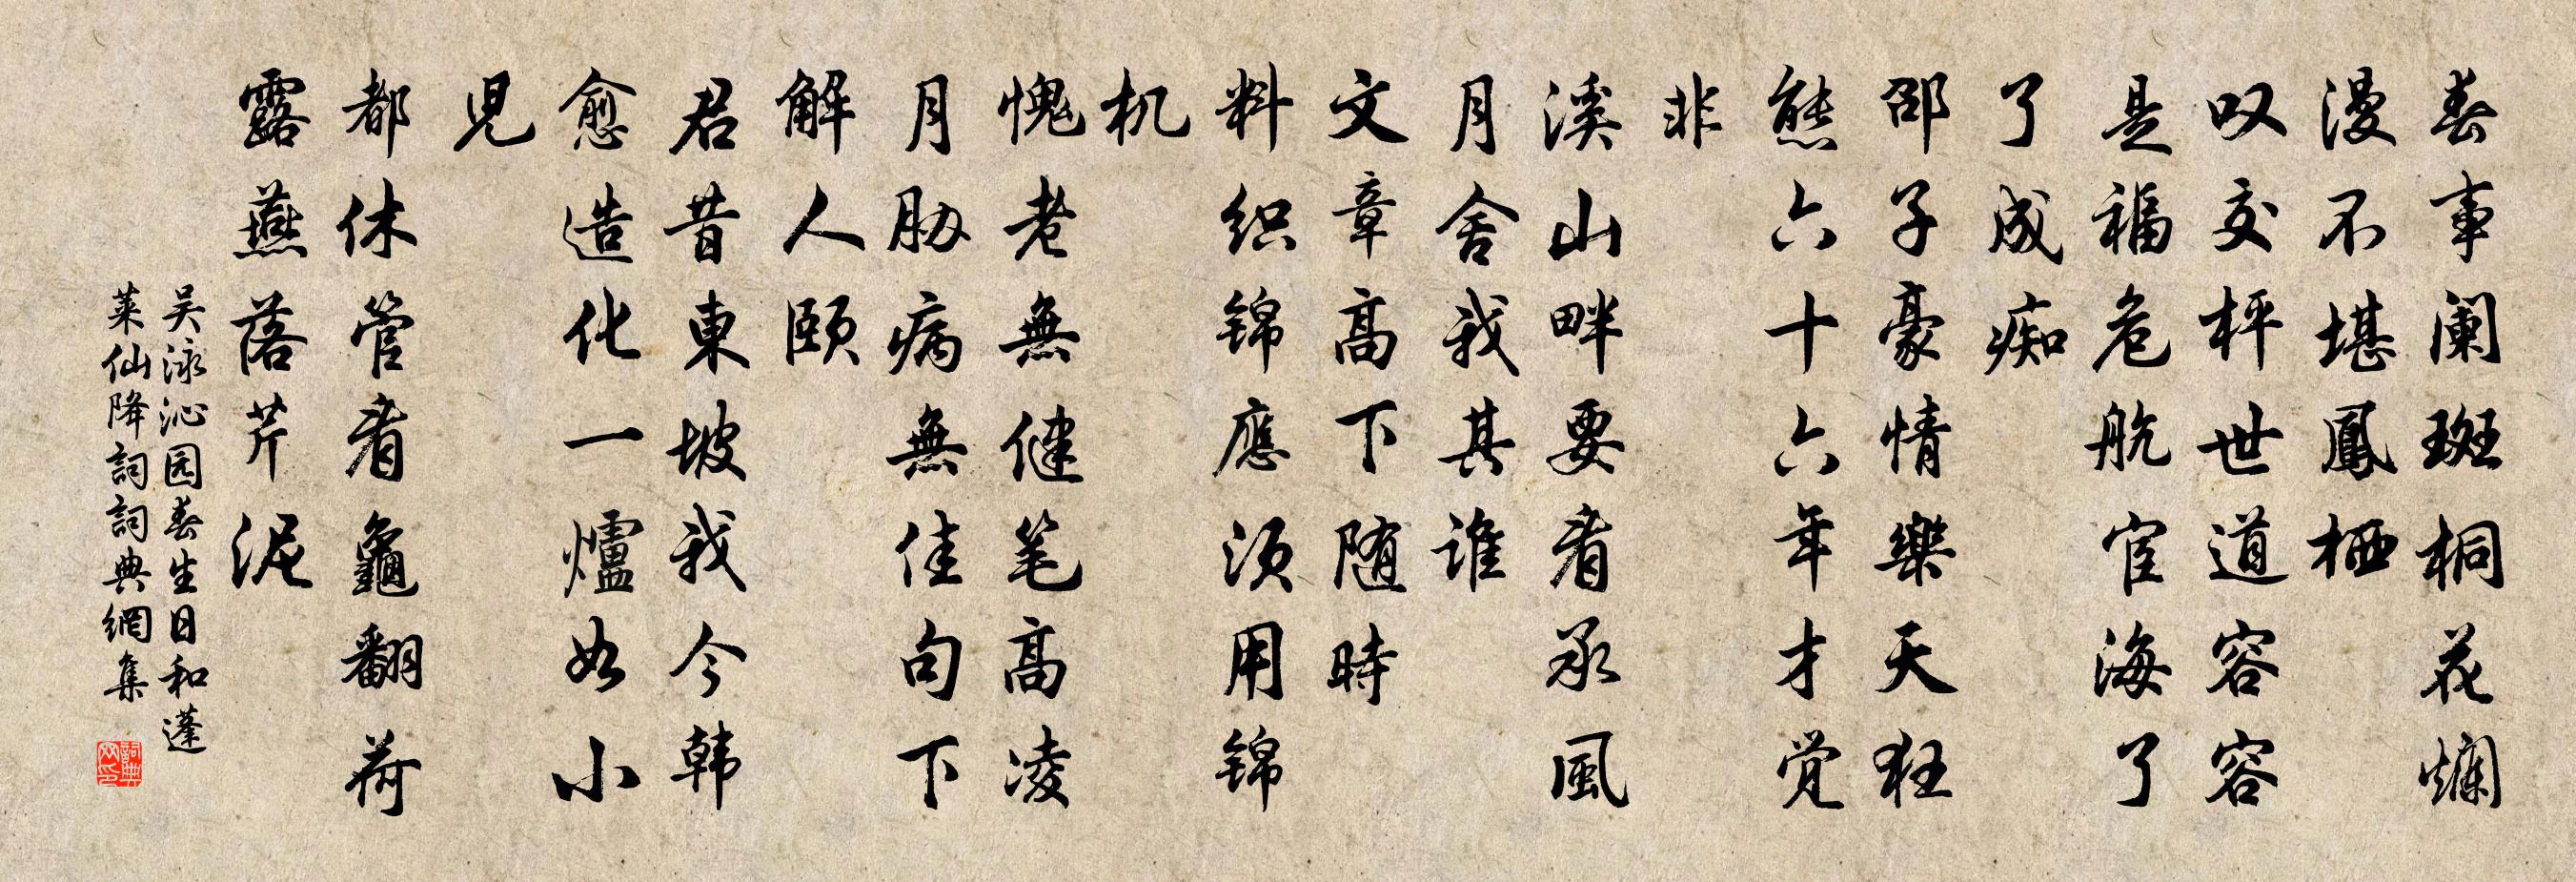 春事阑斑桐花烂
漫不堪鳳栖
叹交枰世道容容
是福危航宦海了
了成痴
邵子豪情樂天狂
態六十六年才觉
非
溪山畔要看承風
月舍我其谁
文章高下随時
料织锦應须用锦
机
愧老無健笔高凌
月胁病無佳句下
解人颐
君昔東坡我今韩
愈造化一爐如小
児
都休管看龜翻荷
露燕落芹泥
吴泳沁园春生日和蓬
莱仙降詞詞典網集
詞典网印